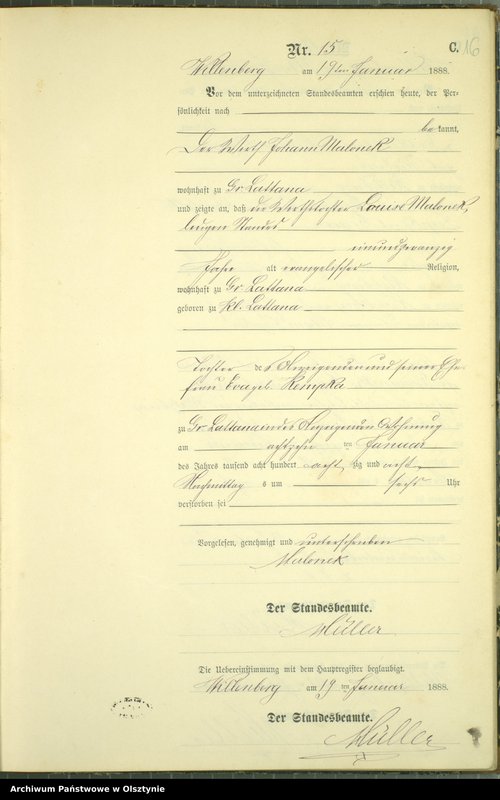 Nr. 15
C.
16
Willenberg am 19ten Januar 1888.
Vor dem unterzeichneten Standesbeamten erschien heute, der Per-
sönlichkeit nach
bekannt,
Der Wirth Johann Malonek
wohnhaft zu Gr Lattana
und zeigte an, daß die Wirthstochter Louise Malonek,
ledigen Standes
einundzwanzig
Jahre alt evangelischer Religion,
wohnhaft zu Gr. Lattana
geboren zu Kl. Lattana
Tochter des Anzeigenden und seiner Ehe-
frau geb. Kempka
zu Gr. Lattana in des Anzeigenden Wohnung
am achtzehn ten Januar
des Jahres tausend acht hundert acht zig und acht
Nachmittag s um sechs Uhr
verstorben sei
Vorgelesen, genehmigt und unterschrieben
Malonek
Der Standesbeamte.
Müller
Die Uebereinstimmung mit dem Hauptregister beglaubigt.
Willenberg am 19 ten Januar 1888.
Der Standesbeamte.
Müller
Archiwum Państwowe w Olsztynie